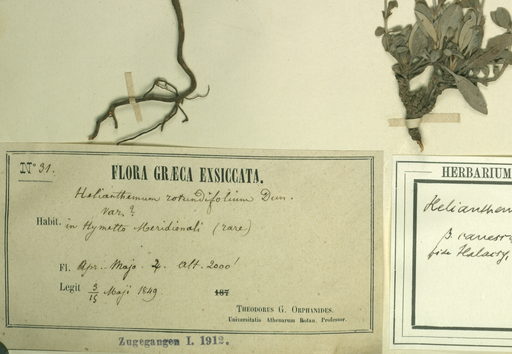 Nº 31.
FLORA GRÆCA EXSICCATA.
Helianthemum rotundifolium Dun.
Var.
Habit. in Hymetto Meridionali (rare)
Fl. Apr. Majo. ♃. Alt. 2000'
Legit 3/15 Maji 1849.
187
THEODORUS G. ORPHANIDES.
Universitatis Athenarum Botan. Professor.
Zugegangen I. 1912.
HERBARIUM
Helianthem
β. canesc
fide Halacsy,